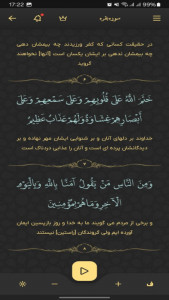 17:22
89%
سوره بقره
در حقیقت کسانی که کفر ورزیدند چه بیمشان دهی
چه بیمشان ندهی بر ایشان یکسان است [آنها] نخواهند
گروید
خَتَمَ اللَّهُ عَلَىٰ قُلُوبِهِمْ وَعَلَىٰ سَمْعِهِمْ وَعَلَىٰ
أَبْصَارِهِمْ غِشَاوَةٌ وَلَهُمْ عَذَابٌ عَظِيمٌ
خداوند بر دلهای آنان و بر شنوایی ایشان مهر نهاده و بر
دیدگانشان پرده ای است و آنان را عذابی دردناک است
وَمِنَ النَّاسِ مَنْ يَقُولُ آمَنَّا بِاللَّهِ وَبِالْيَوْمِ
الْآخِرِ وَمَا هُمْ بِمُؤْمِنِينَ
و برخی از مردم می گویند ما به خدا و روز بازپسین ایمان
آورده ایم ولی گروندگان [راستین] نیستند
ف